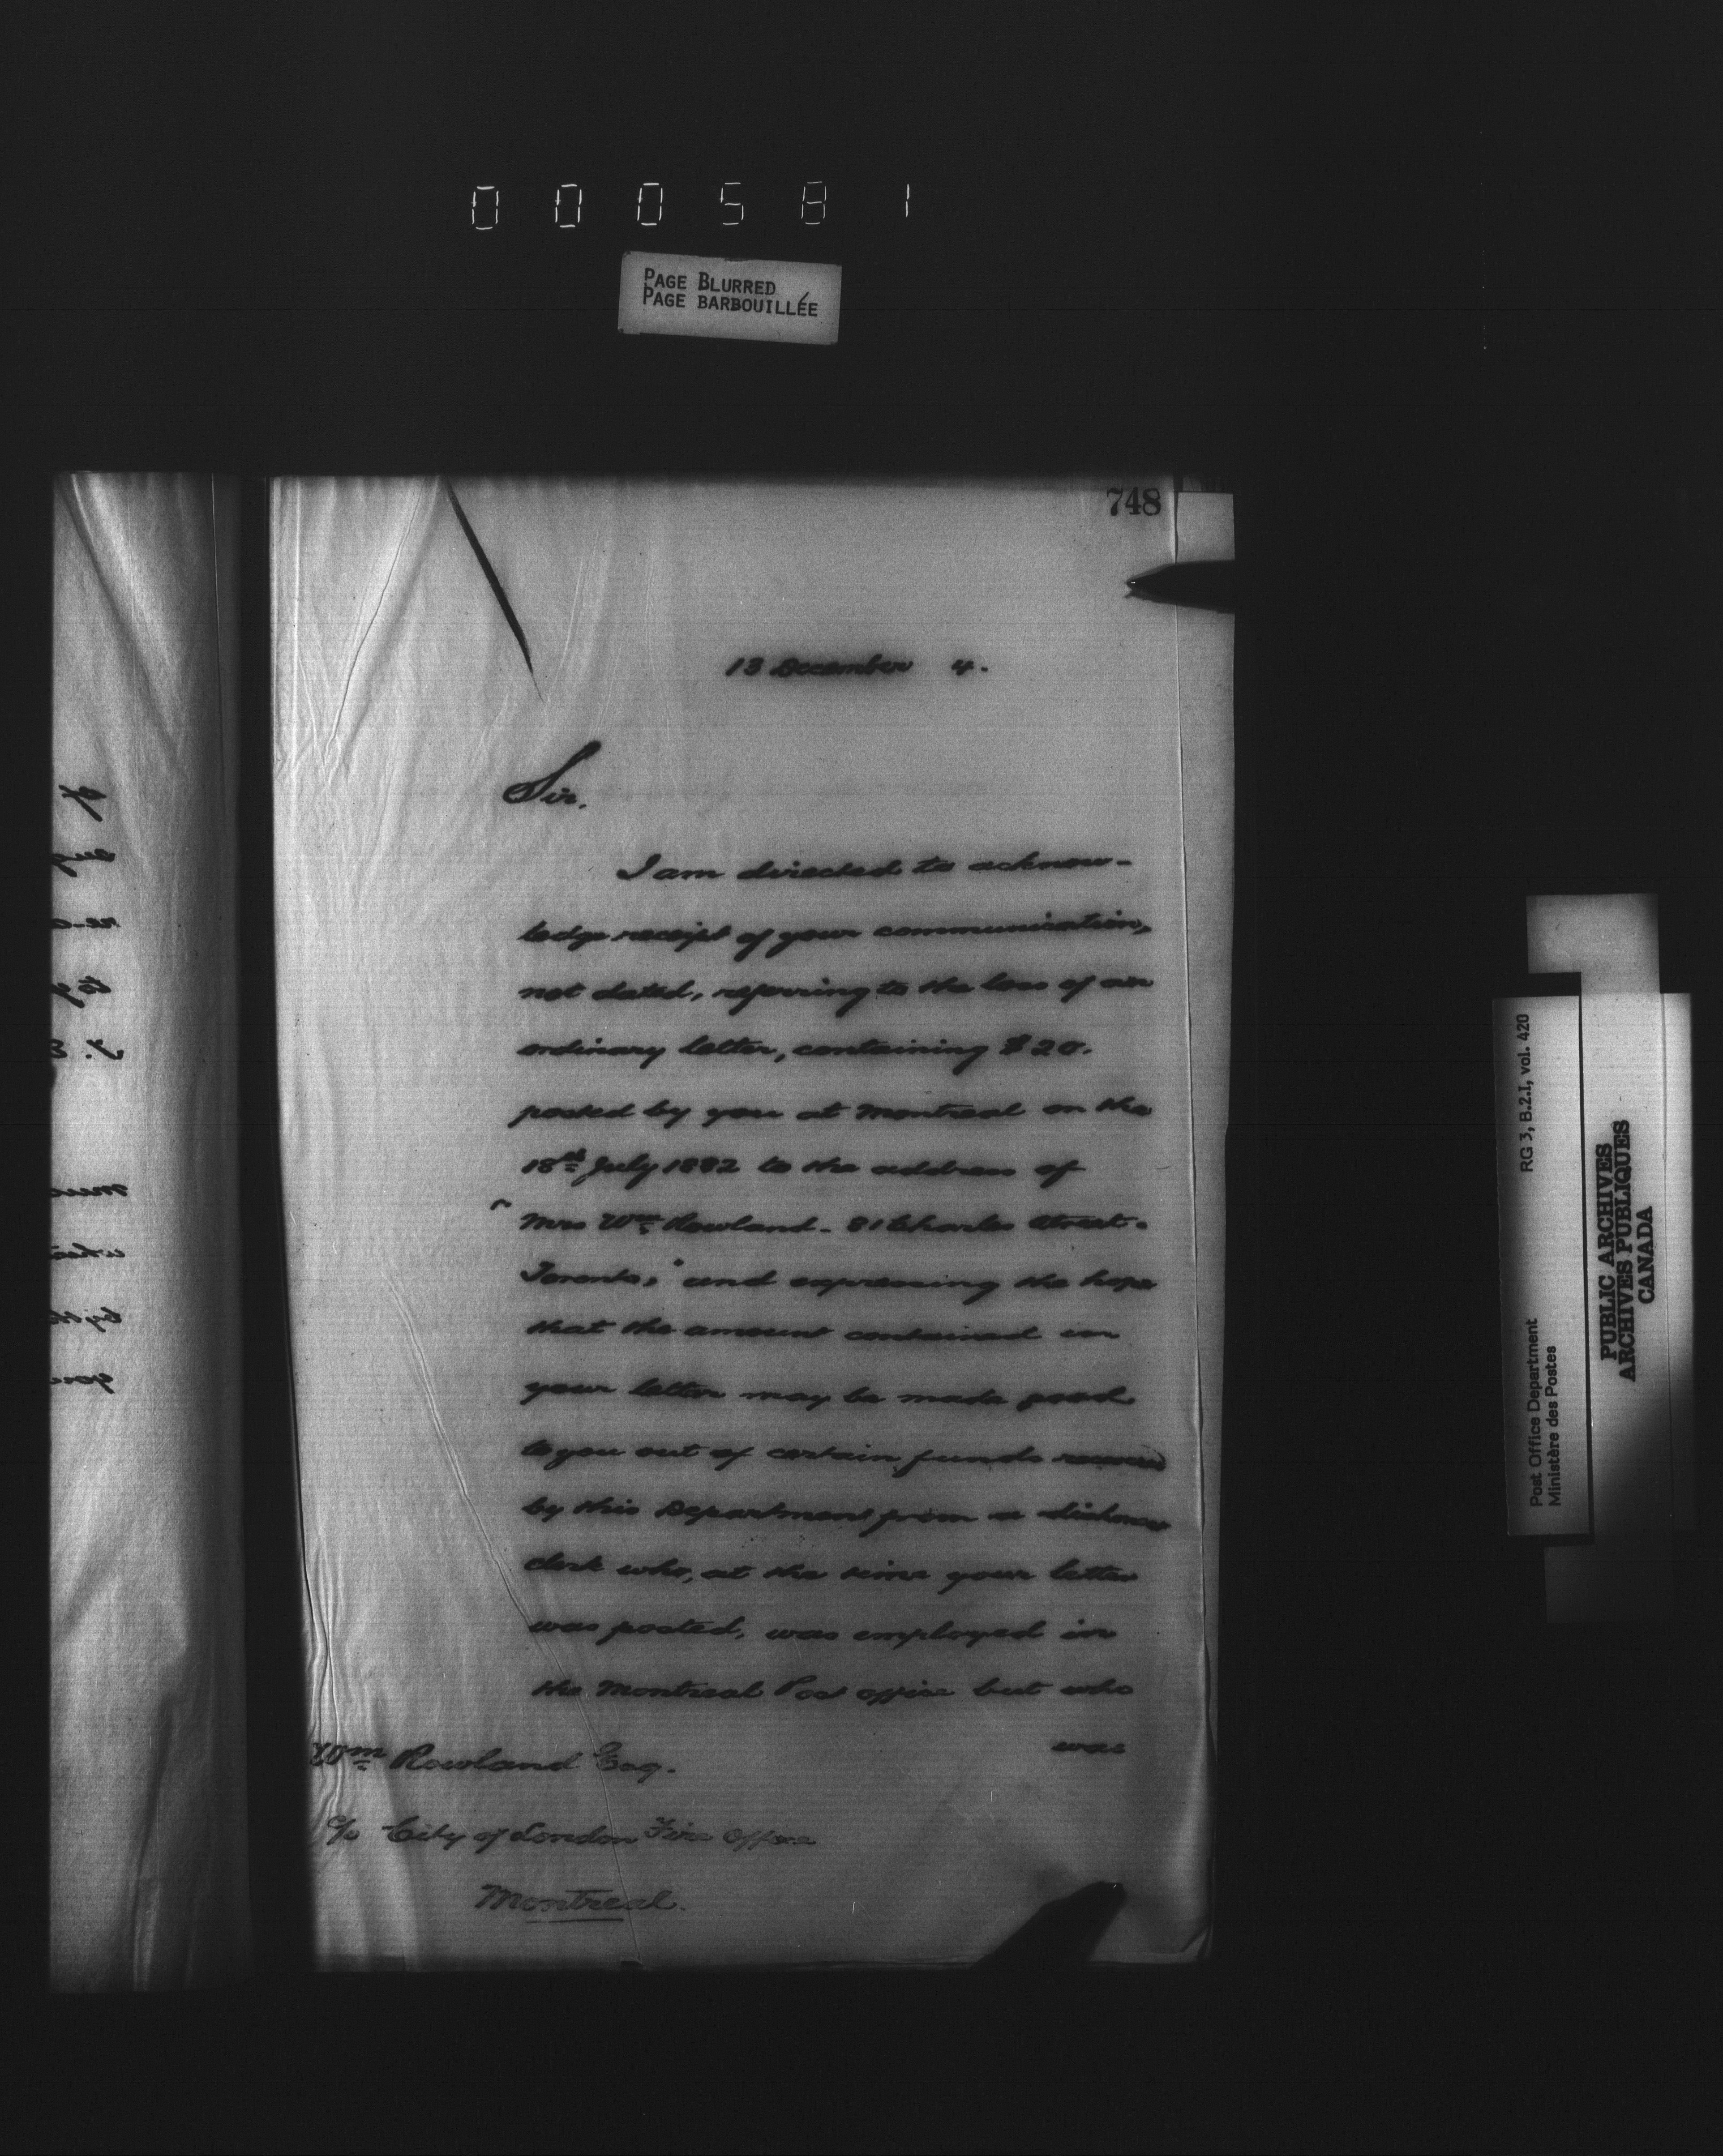 000581
PAGE BLURRED
PAGE BARBOUILLÉE
748
13 December 4.
Sir,
I am directed to acknow-
ledge receipt of your communication,
not dated, referring to the loss of an
ordinary letter, containing $20.
posted by you at Montreal on the
18th July 1882 to the address of
"Mrs Wm Rowland - 81 Charles Street.
Toronto," and expressing the hope
that the amount contained in
your letter may be made good
to you out of certain funds received
by this Department from a dishonest
clerk who, at the time your letter
was posted, was employed in
the Montreal Post office but who
was
Wm Rowland Esq.
c/o City of London Fire Office
Montreal.
RG 3, B.2.I, vol. 420
Post Office Department
Ministère des Postes
PUBLIC ARCHIVES
ARCHIVES PUBLIQUES
CANADA